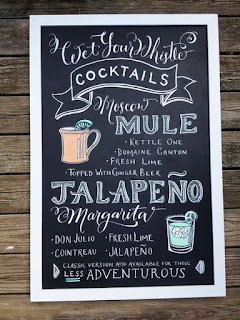 Wet Your Whistle
COCKTAILS
Moscow
MULE
· KETTLE ONE
· DOMAINE CANTON
· FRESH LIME
· TOPPED WITH GINGER BEER
JALAPEÑO
Margarita
· DON JULIO · FRESH LIME
· COINTREAU · JALAPEÑO
CLASSIC VERSION ALSO AVAILABLE FOR THOSE
LESS ADVENTUROUS